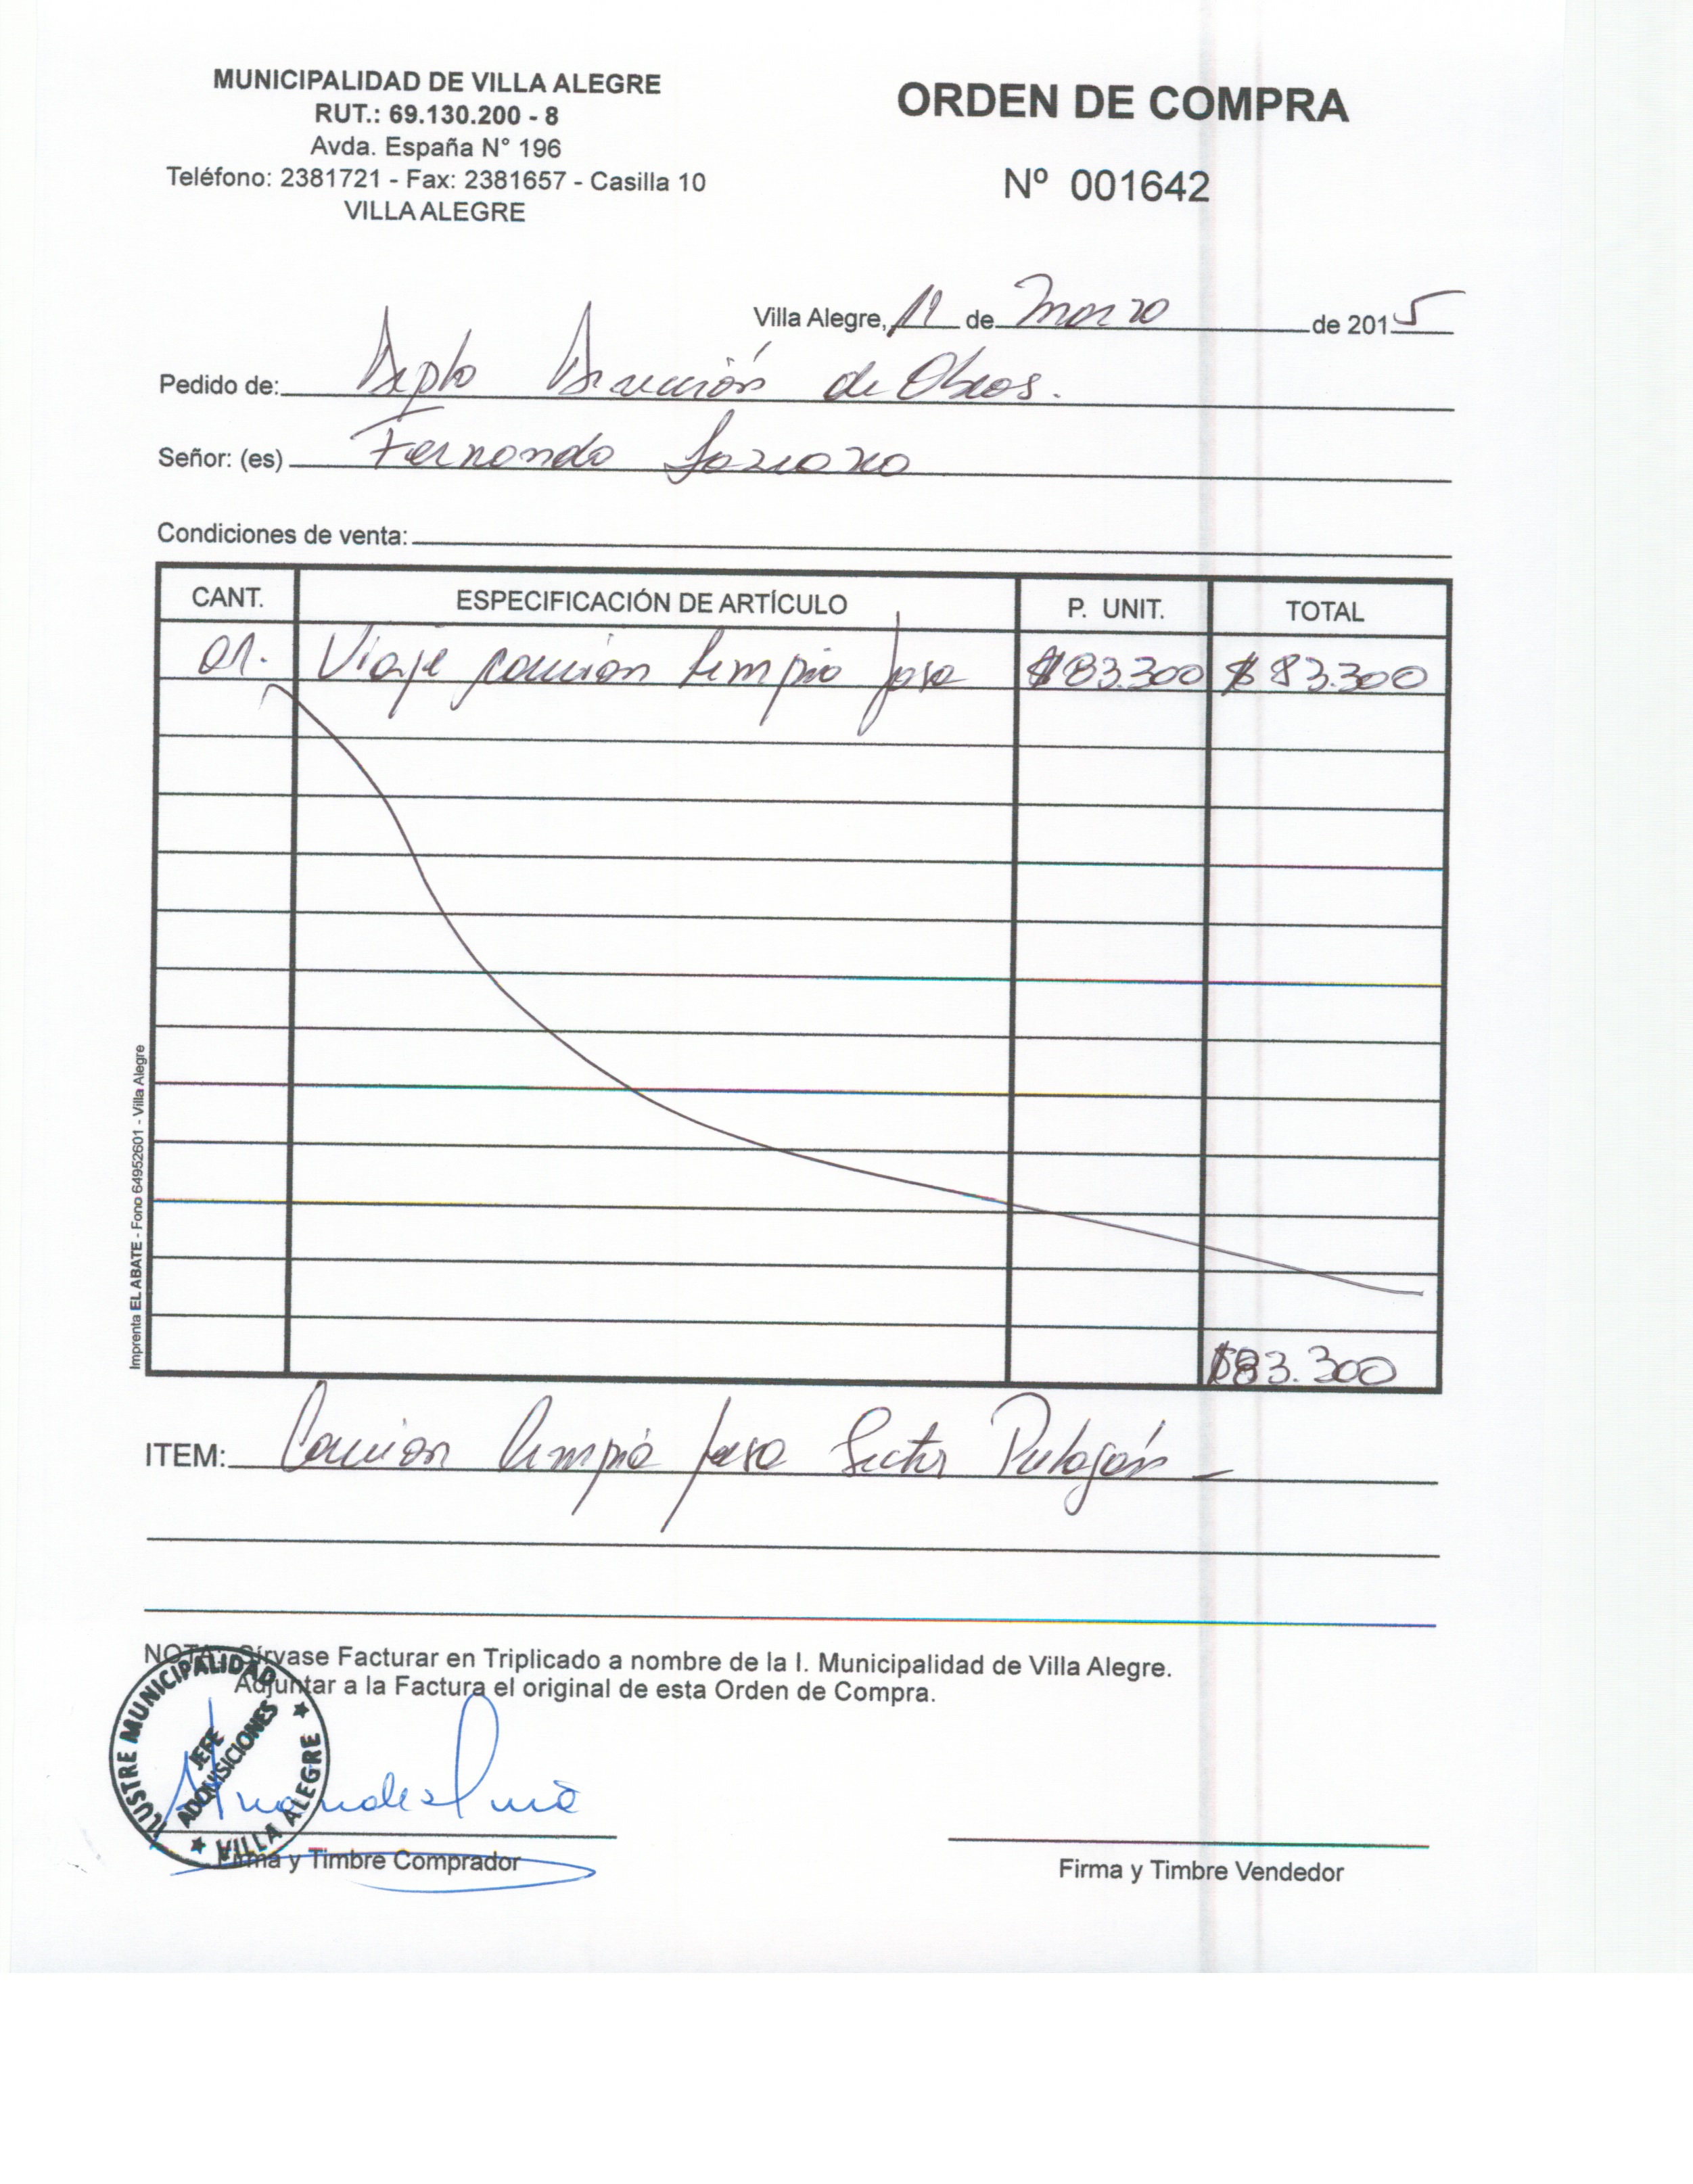 MUNICIPALIDAD DE VILLA ALEGRE
RUT.: 69.130.200 - 8
Avda. España N° 196
Teléfono: 2381721 - Fax: 2381657 - Casilla 10
VILLA ALEGRE
ORDEN DE COMPRA
Nº 001642
Villa Alegre, de Marzo de 2015
Pedido de: Depto Dirección de Obras.
Señor: (es) Fernando
Condiciones de venta:
CANT. ESPECIFICACIÓN DE ARTÍCULO P. UNIT. TOTAL
01. Viaje camion limpia fosa $83.300 $83.300
$83.300
ITEM: Camion limpia fosa Sector Putagán
NOTA: Sírvase Facturar en Triplicado a nombre de la I. Municipalidad de Villa Alegre.
Adjuntar a la Factura el original de esta Orden de Compra.
ILUSTRE MUNICIPALIDAD
JEFE
ADQUISICIONES
★ VILLA ALEGRE ★
Firma y Timbre Comprador
Firma y Timbre Vendedor
Imprenta EL ABATE - Fono 64952601 - Villa Alegre